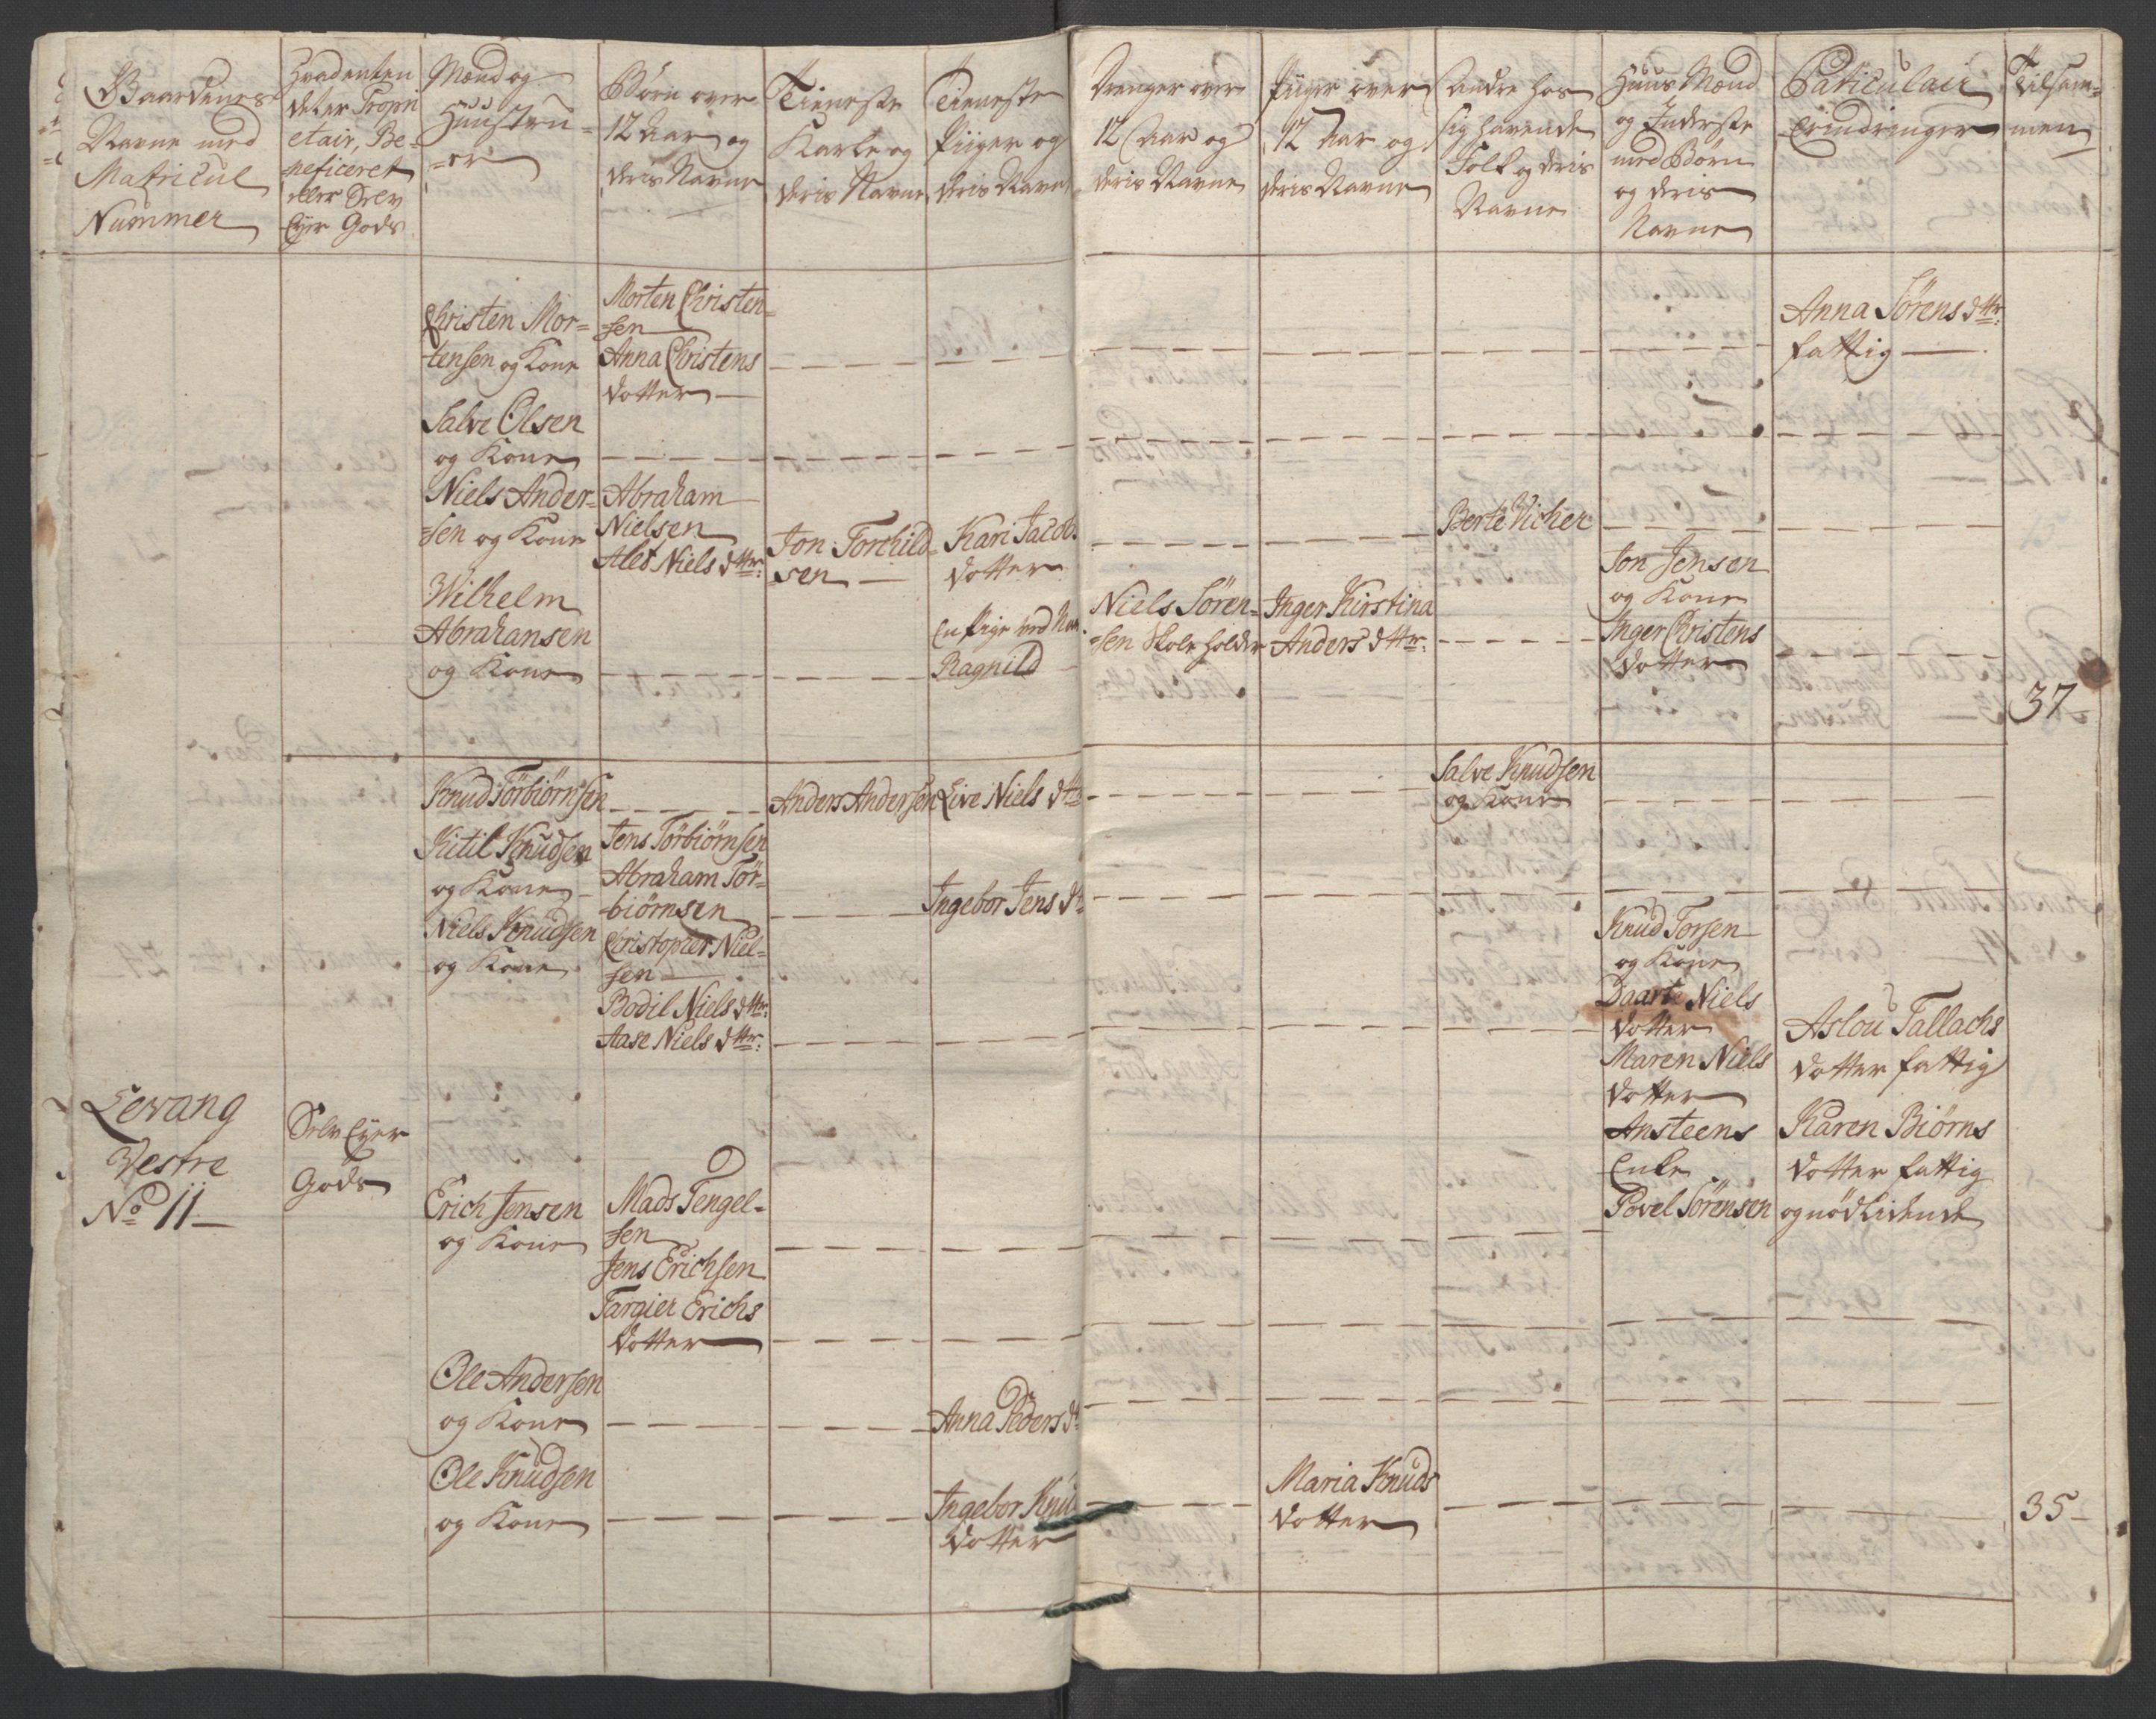 Gaardenes
Navne med
Matricul
Nummer
Hvad enten
det er Propri
etair, Be-
neficeret
eller Selv
Eyer Gods
Mænd og
Huustru-
=er
Børn over
12 Aar og
deris Navne
Tieneste
Karle og
deris Navne
Tieneste
Piiger og
deris Navne
Drenger over
12 Aar og
deris Navne
Piiger over
12 Aar og
deris Navne
Andre hos
sig havende
Folk og deris
Navne
Huus Mænd
og Inderste
med Børn
og deris
Navne
Paticulair
Erindringer
Tilsam=
men
Christen Mor=
tensen og Kone
Morten Christen=
=sen
Anna Christens
dotter
Anna Sørens dttr:
fattig
Salve Olsen
og Kone
Niels Ander=
=sen og Kone
Abraham
Nielsen
Ales Niels dttr:
Jon Torkild=
=sen
Kari Jacob.
dotter
Berte Vicher
Wilhelm
Abrahansen
og Kone
En Pige ved Nav
Ragnild
Niels Søren=
=sen Skoleholder
Inger Kirstina
Anders dttr:
Jon Jensen
og Kone
Inger Christens
dotter
37
Knud Törbiörnsen
Anders Andersen
Live Niels dttr
Salve Knudsen
og Kone
Kitil Knudsen
og Kone
Jens Törbiörnsen
Abraham Tör=
=biörnsen
Ingebor Jens dt
Niels Knudsen
og Kone
Christopher Niel=
sen
Bodil Niels dttr:
Aase Niels dttr:
Knud Torsen
og Kone
Daarte Niels
dotter
Maren Niels
dotter
Ansteens
Enke
Povel Sörensen
Aslou Tallachs
dotter fattig
Karen Biörns
dotter fattig
og nödlidende
Levang
Vestre
No 11
Selv Eyer
Gods
Erich Jensen
og Kone
Mads Tengel=
sen
Jens Erichsen
Targier Erichs
dotter
Ole Andersen
og Kone
Anna Peders dt
Ole Knudsen
og Kone
Ingebor Knu
dotter
Maria Knuds
dotter
35